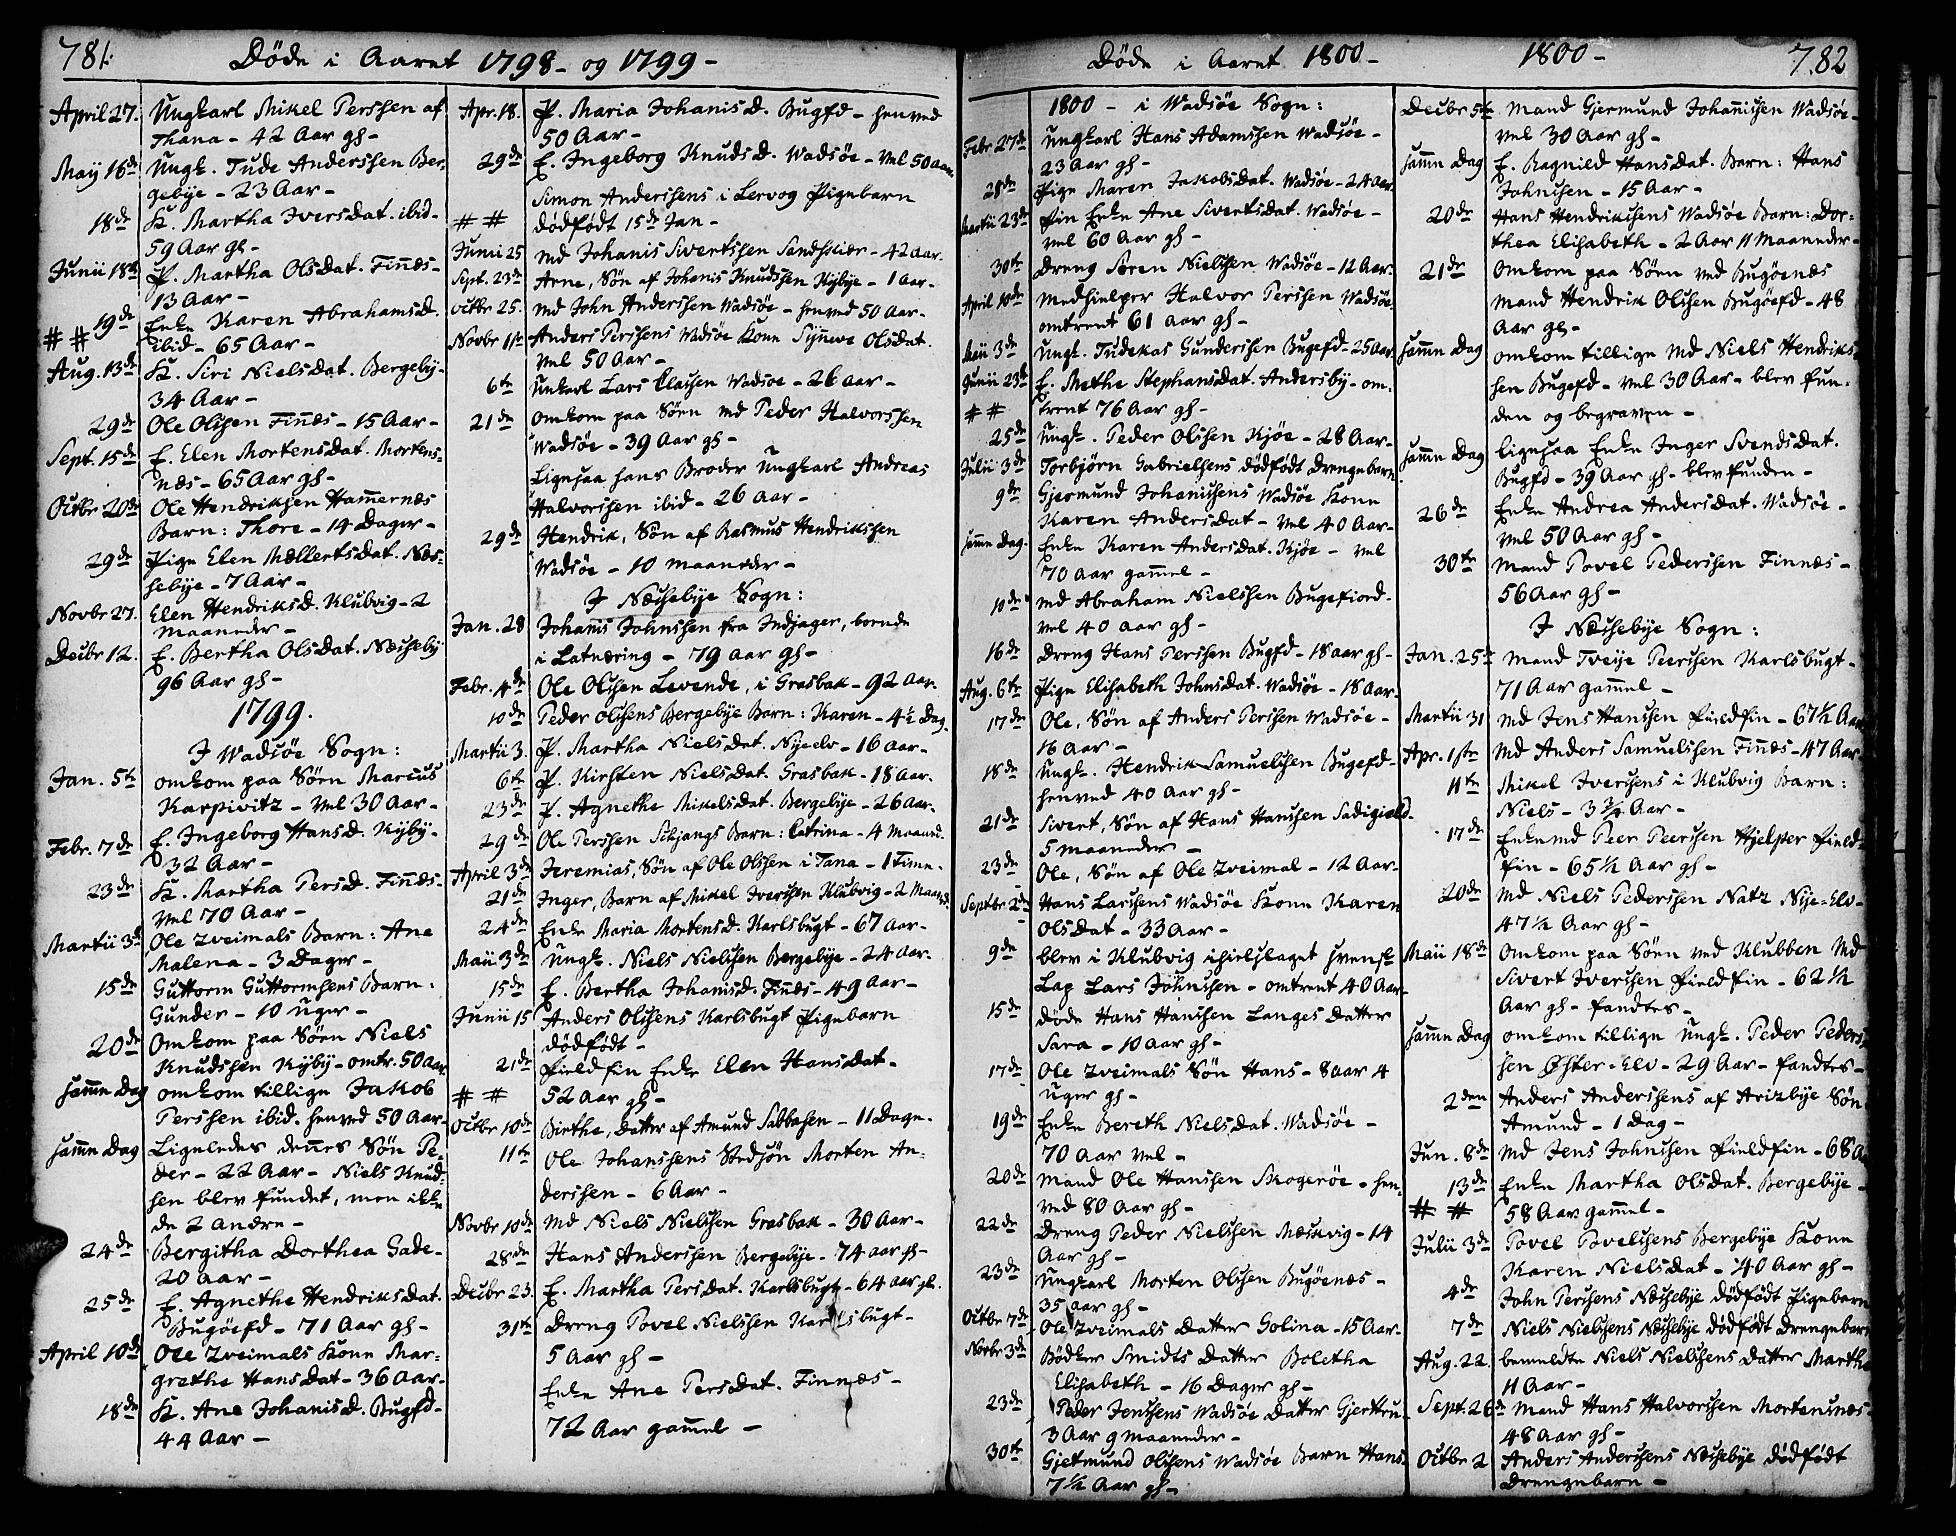 781.
Døde i Aaret 1798 - og 1799 -
April 27. Ungkarl Mikel Perssen af
Thana - 42 Aar gl -
Maij 16de Ungk. Tude Anderssen Ber-
gebije - 23 Aar -
18de K. Martha Iversdat. ibid -
59 Aar gl -
Junii 18de P. Martha Olsdat. Finnes -
13 Aar -
19de Enke Karen Abrahamsd.
# # ibid - 65 Aar -
Aug. 13de K. Siri Nielsdat. Bergeby -
34 Aar -
29de Ole Olssen Finnes - 15 Aar -
Sept. 15de E. Elen Mortensdat. Mortens-
næs - 65 Aar gl -
Octbr 20de Ole Hendriksen Hamernæs
Barn: Thore - 14 Dager -
29de Pige Elen Mællertsdat. Næs-
sebije - 7 Aar -
Novbr 27. Elen Hendriksd. Klubvig - 2
maaneder -
Decbr 12. E. Bertha Olsdat. Næsseby
96 Aar gl -
1799.
I Wadsøe Sogn:
Jan. 5te omkom paa Søen Marcus
Karpivitz - vel 30 Aar -
Febr. 7de E. Ingeborg Hansd. Kyby -
32 Aar -
23de K. Martha Persd. Finnes -
vel 70 Aar -
Martii 3de Ole Zveimals Barn: Ane
Malena - 3 Dager -
15de Guttorm Guttormsens Barn:
Gunder - 10 Uger -
20de Omkom paa Søen Niels
Knudssen Kyby - omtr. 50 Aar
samme Dag omkom tillige Jakob
Perssen ibid. henved 50 Aar -
samme Dag Ligeledes dennes Søn Pe-
der - 22 Aar - Niels Knud-
sen blev fundet, men ikke
de 2 andre -
24de Bergitha Dorthea Gade -
20 aar -
25de E. Agnethe Hendriksdat.
Bugøefd - 71 Aar gl -
April 10de Ole Zveimals Kone Mar-
grethe Hansdat - 36 Aar -
18de K. Ane Johanisd. Bugfd -
44 Aar -
Apr. 18. P. Maria Johanisd. Bugfd - henved
50 Aar -
29de E. Ingeborg Knudsd. Wadsøe - vel 50 aar
Simon Anderssens i Lervog Pigebarn
# # dødfødt 15de Jan -
Junii 25 md Johanis Sivertssen Sandskiær - 42 aar
Sept. 23de Arne, Søn af Johanis Knudssen Kybye - 1 Aar -
Octbr 25. md John Anderssen Wadsøe - henved 50 Aar -
Novbr 1ste Anders Perssens Wadsøe Kone Synneve Olsdat.
vel 50 Aar -
6te Unkarl Lars Classen Wadsøe - 26 aar -
21de omkom paa Søen md Peder Halvorssen
Wadsøe - 39 Aar gl -
Ligesaa hans Broder Ungkarl Andreas
Halvorssen ibid - 26 aar -
29de Hendrik, Søn af Rasmus Hendrikssen
Wadsøe - 10 maaneder -
I Næssebije Sogn:
Jan. 28 Johanis Johnssen fra Indjager, boende
i Latnæring - 79 aar gl -
Febr. 4de Ole Olssen Levende, i Grasbak - 92 Aar.
10de Peder Olssens Bergebije Barn: Karen - 4½ Dag
Martii 3. P. Martha Nielsdat. Nyeelv - 16 aar -
6te P. Kirsten Nielsdat. Grasbak - 18 Aar.
23de P. Agnethe Mikelsdat. Bergebije - 26 aar.
29de Ole Perssen Schjangs Barn: Catrina - 4 maand.
April 3de Jeremias, Søn af Ole Olssen i Tana - 1 Time -
21de Inger, Barn af Mikel Iverssen Klubvig - 2 Maand
24de Enke Maria Mortensd. Karlsbugt - 67 Aar -
Maii 3de Ungk. Niels Nielssen Bergebije - 24 aar.
15de E. Bertha Johanisd. Finnes - 49 Aar -
Junii 15 Anders Olssens Karlsbugt Pigebarn
dødfødt -
21de Fieldfin Enke Elen Hansdat -
# # 52 aar gl -
Octbr 10de Birthe, Datter af Amund Sabbasen - 11 Dage.
11te Ole Johanssens Stedsøn Morten An-
derssen - 6 Aar -
Novbr 10de md Niels Nielssen Grasbak - 30 Aar -
28de Hans Anderssen Bergebije - 74 aar gl -
Decbr 23. E. Martha Persdat. Karlsbugt - 64 aar gl.
31te Dreng Povel Nielssen Karlsbugt -
5 Aar gl -
Enke Ane Persdat. Finnæs -
72 Aar gammel -
Døde i Aaret 1800 -
1800 -
782
1800 - i Wadsøe Sogn:
Febr 27de Ungkarl Hans Adamssen Wadsøe -
23 Aar gl -
28de Pige Maren Jakobsdat. Wadsøe - 24 Aar
Martii 23de Fin Enke Ane Sivertsdat. Wadsøe -
vel 60 Aar gl -
30te Dreng Søren Nielssen Wadsøe - 12 Aar.
April 10de Medhielper Halvor Perssen Wadsøe
omtrent 61 aar gl -
Maii 3de Ungk. Tudekas Gunderssen Bugefd - 25 Aar
Junii 23de E. Methe Stephansdat. Andersby - om-
# # trent 76 Aar gl -
25de Ungk. Peder Olssen Kjøe - 28 Aar -
Julii 3de Torbjørn Gabrielsens dødfødt Drengebarn
9de Gjermund Johanissens Wadsøe Kone
Karen Andersdat - vel 40 Aar -
samme Dag. Enke Karen Andersdat. Kjøe - vel
70 Aar gammel -
10de md Abraham Nielssen Bugefiord -
vel 40 aar gl -
16de Dreng Hans Perssen Bugfd - 18 aar gl -
Aug. 6te Pige Elisabeth Johnsdat. Wadsøe - 18 Aar.
17de Ole, Søn af Anders Perssen Wadsøe -
16 aar -
18de Ungk. Hendrik Samuelssen Bugefd -
henved 40 Aar gl -
21de Sivert, Søn af Hans Hanssen Sadigield.
5 maaneder -
23de Ole, Søn af Ole Zveimal - 12 Aar -
Septbr 2de Hans Larssens Wadsøe Kone Karen
Olsdat - 33 Aar -
9de blev i Klubvig ihielslaget svensk
Lap Lars Johnssen - omtrent 40 Aar -
15de døde Hans Hanssen Langes Datter
Sara - 10 Aar gl -
17de Ole Zveimals Søn Hans - 8 aar 4
Uger gl -
19de Enke Bereth Nielsdat. Wadsøe -
70 Aar vel -
20de Mand Ole Hanssen Skogerøe - hen-
ved 80 Aar gl -
22de Dreng Peder Nielssen Mæskvig - 14
Aar gl -
23de Ungkarl Morten Olssen Bugøenæs -
35 aar gl -
Octbr 7de Ole Zveimals Datter Golina - 15 Aar -
Novbr 3de Bødker Smidts Datter Boletha
Elisabeth - 16 Dager gl -
23de Peder Jenssens Wadsøe Datter Gjertru-
3 Aar 9 maaneder -
30te Gjetmund Olssens Wadsøe Barn Hans.
7½ Aar gl -
Decbr 5te Mand Gjermund Johanissen Wadsøe -
vel 30 Aar gl -
samme Dag E. Ragnild Hansdat. Barn: Hans
Johnssen - 15 Aar -
20de Hans Hendrikssens Wadsøe Barn: Dor-
thea Elisabeth - 2 Aar 11 Maaneder -
21de Omkom paa Søen ved Bugøenæs
Mand Hendrik Olssen Bugøefd - 48
Aar gl -
samme Dag omkom tillige md Niels Hendriks-
sen Bugefd - vel 30 Aar - blev fun-
den og begraven -
samme Dag ligesaa Enke Inger Svendsdat.
Bugfd - 39 Aar gl - blev funden -
26de Enke Andrea Andersdat. Wadsøe -
vel 50 Aar gl -
30te Mand Povel Pederssen Finnæs -
56 Aar gl -
I Næssebije Sogn:
Jan. 25de Mand Tveije Peerssen Karlsbugt -
71 Aar gammel -
Martii 31 md Jens Hanssen Fieldfin - 67½ Aar
Apr. 1ste md Anders Samuelssen Finnæs - 47 Aar
11te Mikel Iverssens i Klubvig Barn:
Niels - 3¾ Aar -
17de Enkemd Peer Peerssen Hjelper Field-
fin - 65½ Aar gl -
20de md Niels Pederssen Natz Nije-Elv -
47½ Aar gl -
Maii 18de Omkom paa Søen ved Klubben md
Sivert Iverssen Fieldfin - 62½
Aar gl - fandtes -
samme Dag omkom tillige Ungk. Peder Peders-
sen Øster-Elv - 29 Aar - fandtes -
2den Anders Anderssens af Arizbije Søn
Amund - 1 Dag -
Jun. 8de md Jens Johnssen Fieldfin - 68 A
13de Enke Martha Olsdat. Bergebije -
# # 58 Aar gammel -
Julii 3de Povel Povelssens Bergebije Kone
Karen Nielsdat - 40 Aar gl -
4de John Perssens Næssebije dødfødt Pigebarn
7de Niels Nielssens Næssebije dødfødt Drengebarn
Aug. 22. bemeldte Niels Nielssens Datter Martha
11 Aar -
Sept. 26de Mand Hans Halvorssen Mortensnæs -
48 Aar gl -
Octbr 2 Anders Anderssens Næssebije dødfødt
Drengebarn -